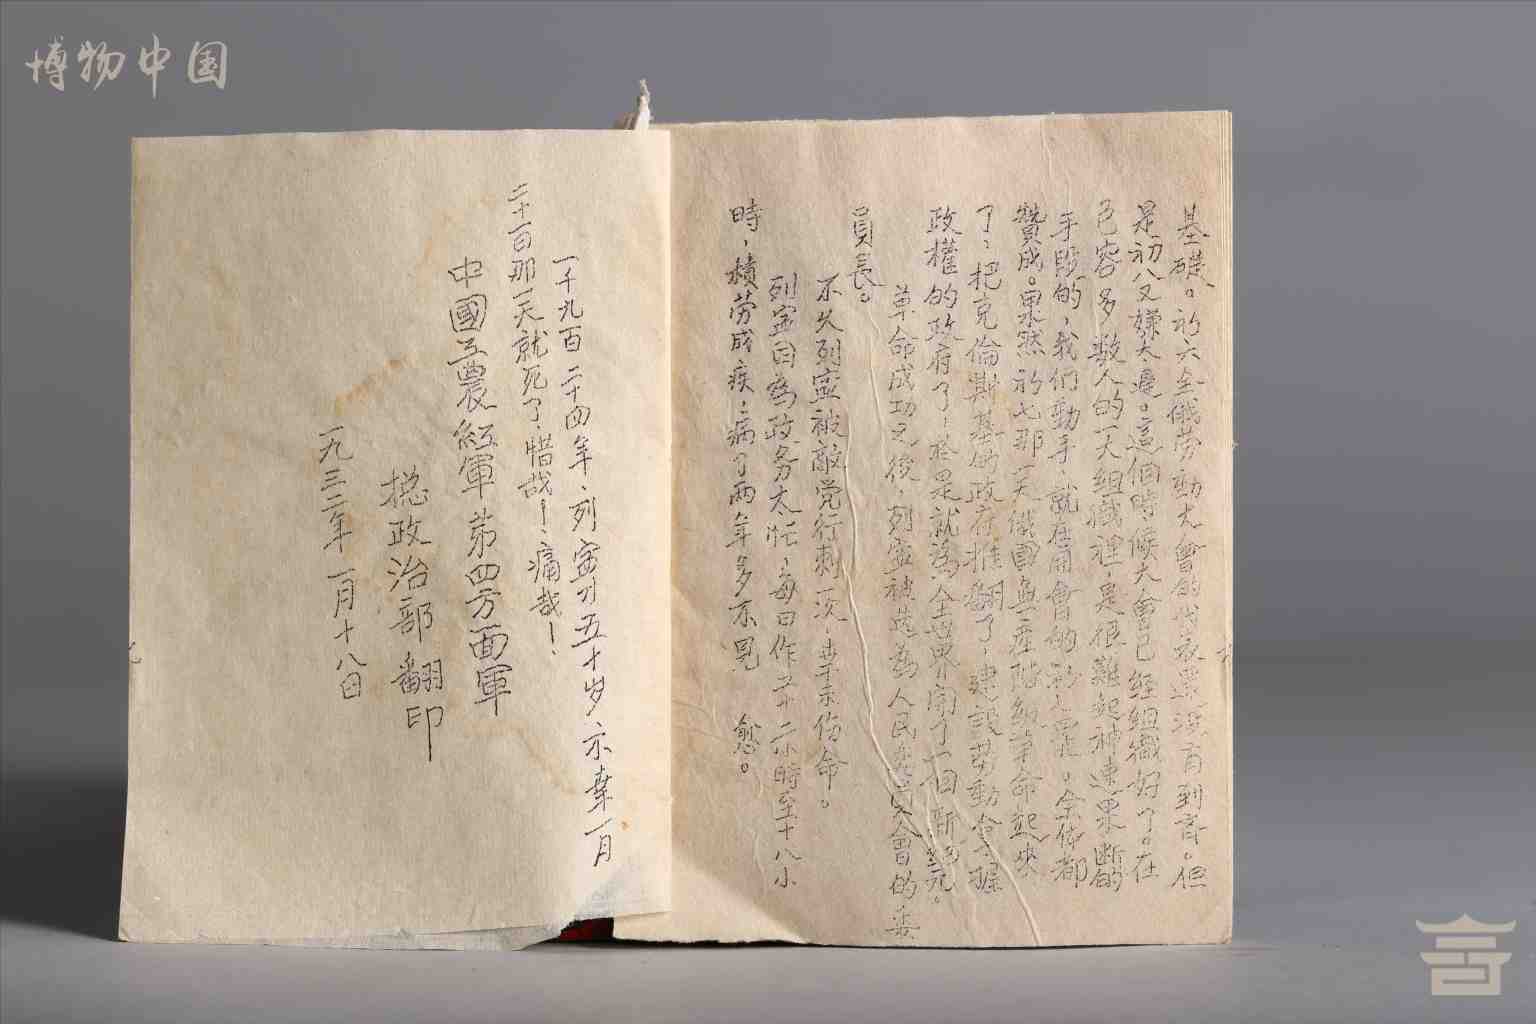 博物中国
基礎。初六全俄劳動大會的代表還没有到齊。但
是初八又嫌太遲。這個時候大會已經組織好了。在
色容多数人的一大組織裡，是很難起神速果断的
手段的，我们動手，就在開會的初七。全体都
贊成。果然初七那一天俄國無產階級革命起來
了，把克倫斯基的政府推翻了，建設劳動合握
政權的政府了，於是就為全世界開了一個新紀元。
革命成功之後，列寧被选為人民委員會的委
員長。
不久列寧被敵党行刺一次，幸未伤命。
列寧因為政务太忙，每日作工十二小時至十八小
時，積劳成疾，病了兩年多不見愈。
一千九百二十四年，列寧才五十岁，不幸一月
二十一日那一天就死了，惜哉！痛哉！
中國工農紅軍第四方面軍
総政治部翻印
一九三二年一月十八日